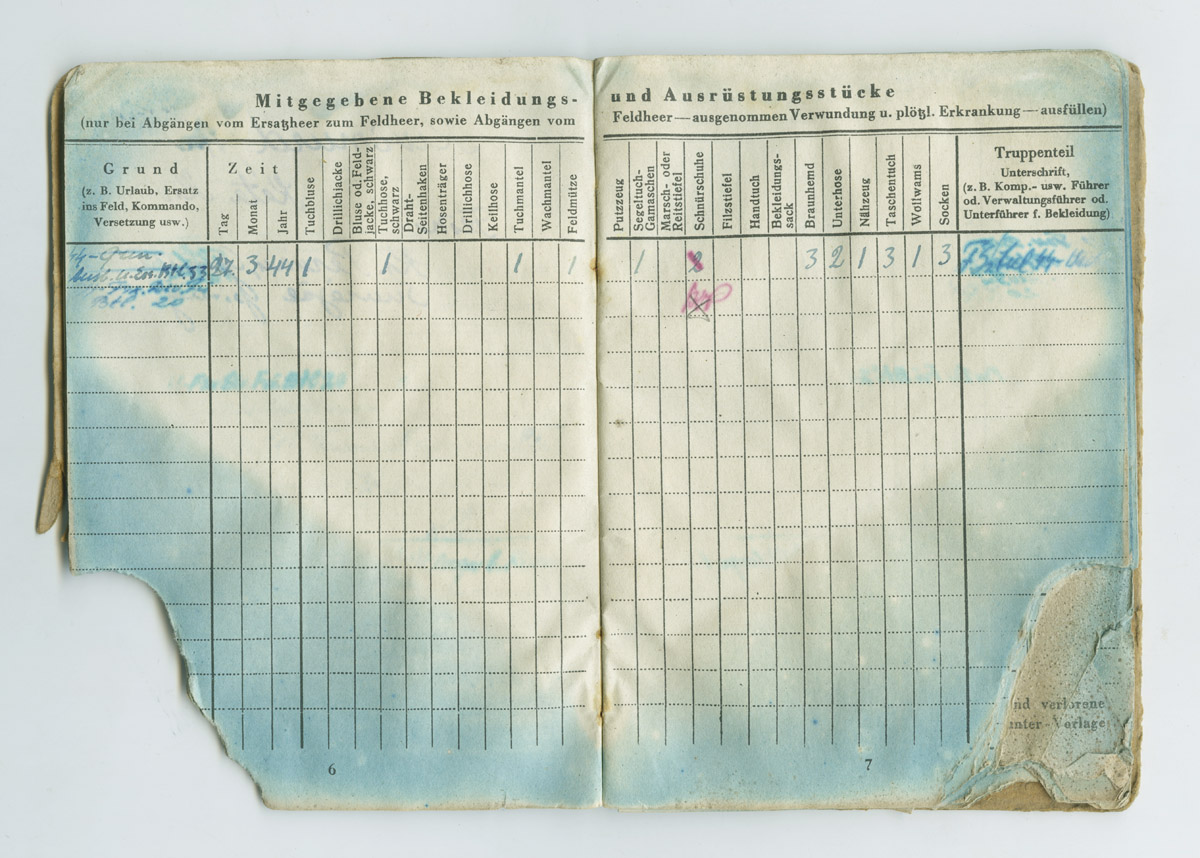 Mitgegebene Bekleidungs-
(nur bei Abgängen vom Ersatzheer zum Feldheer, sowie Abgängen vom
Grund
(z. B. Urlaub, Ersatz
ins Feld, Kommando,
Versetzung usw.)
Zeit
Tag
Monat
Jahr
Tuchbluse
Drillichjacke
Bluse od. Feld-
jacke, schwarz
Tuchhose,
schwarz
Draht-
Seitenhaken
Hosenträger
Drillichhose
Keilhose
Tuchmantel
Wachmantel
Feldmütze
27. 3 44 1 1 1 1
Btl. 20
6
und Ausrüstungsstücke
Feldheer—ausgenommen Verwundung u. plötzl. Erkrankung—ausfüllen)
Putzzeug
Segeltuch-
Gamaschen
Marsch- oder
Reitstiefel
Schnürschuhe
Filzstiefel
Handtuch
Bekleidungs-
sack
Braunhemd
Unterhose
Nähzeug
Taschentuch
Wollwams
Socken
Truppenteil
Unterschrift,
(z. B. Komp.- usw. Führer
od. Verwaltungsführer od.
Unterführer f. Bekleidung)
1 2 3 2 1 3 1 3
nd verlorene
unter-Vorlage
7